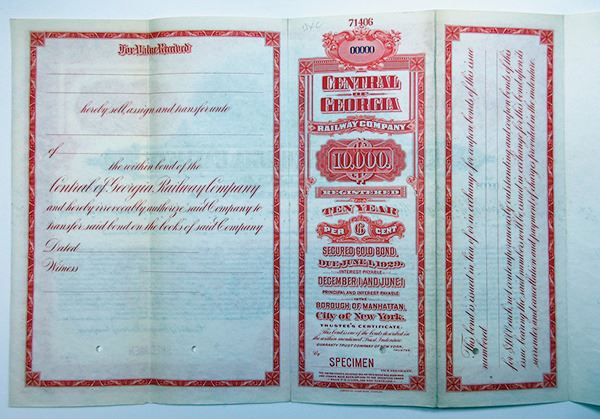 For Value Received
hereby sell, assign and transfer unto
of
the within bond of the
Central of Georgia Railway Company
and hereby irrevocably authorize said Company to
transfer said bond on the books of said Company
Dated
Witness
71406
00000
CENTRAL
OF
GEORGIA
RAILWAY COMPANY
10,000.
REGISTERED
TEN YEAR
PER 6 CENT
SECURED GOLD BOND,
DUE JUNE 1, 1929.
INTEREST PAYABLE
DECEMBER 1 AND JUNE 1
PRINCIPAL AND INTEREST PAYABLE
IN THE
BOROUGH OF MANHATTAN,
City of New York.
TRUSTEE'S CERTIFICATE.
This bond is one of the bonds described in
the within mentioned Trust Indenture
GUARANTY TRUST COMPANY OF NEW YORK,
TRUSTEE
By
SPECIMEN
VICE PRESIDENT.
This bond is issued in lieu of or in exchange for coupon bonds of this issue
numbered
for $1000 each, not contemporaneously outstanding, and coupon bonds of this
issue bearing the said numbers will be issued in exchange for this bond upon its
surrender and upon payment of charges provided in the indenture.